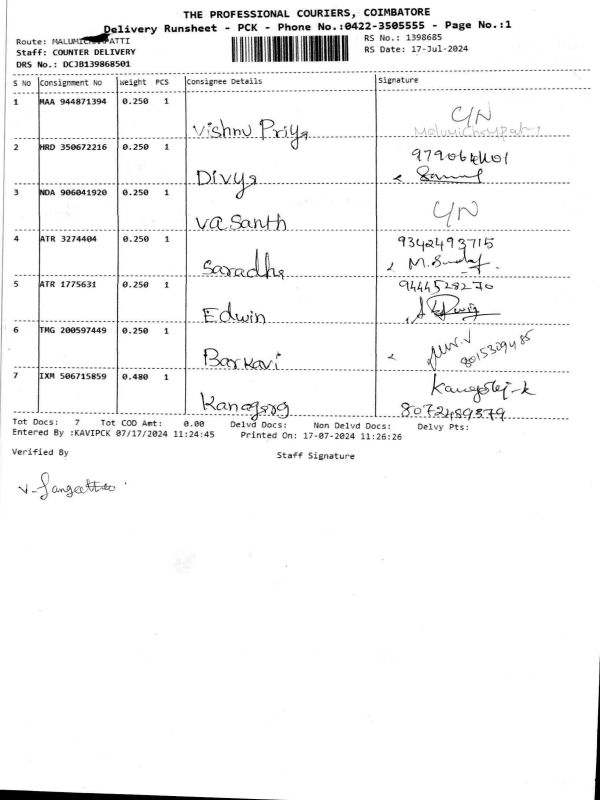 THE PROFESSIONAL COURIERS, COIMBATORE
Delivery Runsheet - PCK - Phone No.:0422-3505555 - Page No.:1
Route: MALUMICHAMPATTI
RS No.: 1398685
Staff: COUNTER DELIVERY
RS Date: 17-Jul-2024
DRS No.: DCJB139868501
S No Consignment No Weight PCS Consignee Details Signature
1 MAA 944871394 0.250 1 Vishnu Priya C/N
2 HRD 350672216 0.250 1 Divya
3 NDA 906041920 0.250 1 Vasanth C/N
4 ATR 3274404 0.250 1 Saradha 9342493715
5 ATR 1775631 0.250 1 Edwin 9444528270
6 TMG 200597449 0.250 1 Barkavi 8015309485
7 IXM 506715859 0.480 1 8072489379
Tot Docs: 7 Tot COD Amt: 0.00 Delvd Docs: Non Delvd Docs: Delvy Pts:
Entered By :KAVIPCK 07/17/2024 11:24:45 Printed On: 17-07-2024 11:26:26
Verified By Staff Signature